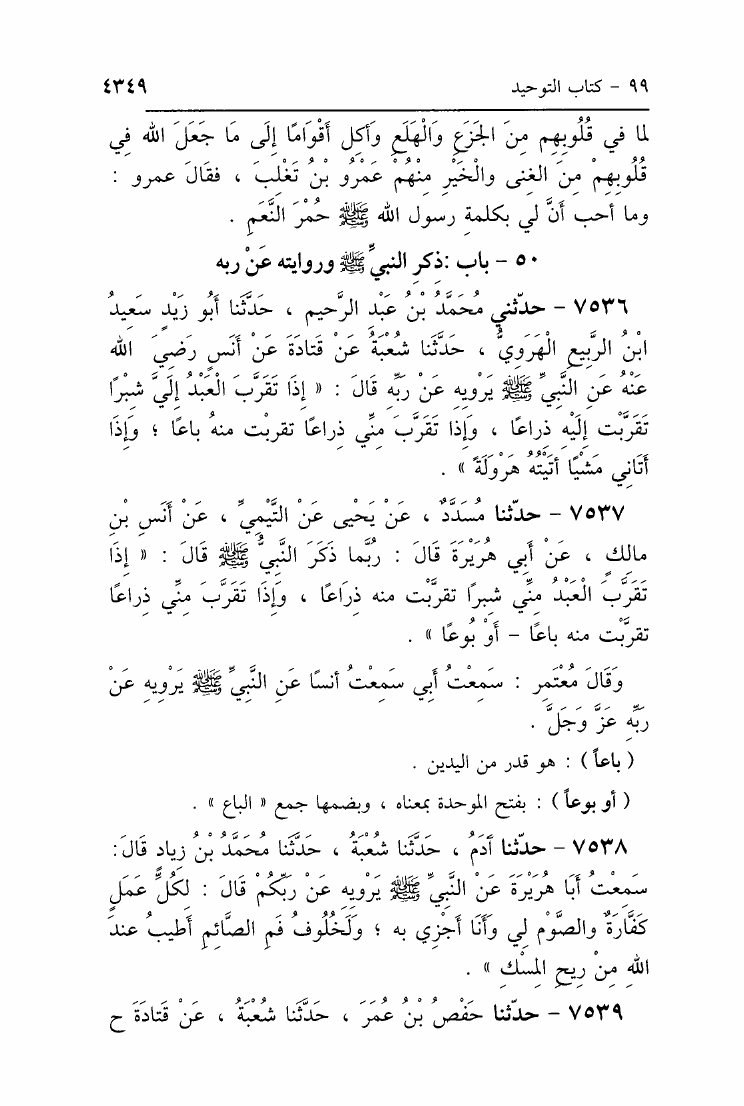 ٩٩ - كتاب التوحيد ٤٣٤٩
لما في قُلُوبِهِم مِنَ الجَزَعِ وَالْهَلَعِ وَأكِل أَقْوَامًا إلَى مَا جَعَلَ الله فِي
قُلُوبِهِمْ مِنَ الغِنى والْخَيْرِ مِنْهُمْ عَمْرُو بْنُ تَغْلِبَ ، فقَالَ عمرو :
وما أحب أَنَّ لي بكلمةِ رسول الله ﷺ حُمْرَ النَّعَمِ .
٥٠ - باب :ذكرِ النبيِّ ﷺ وروايته عَنْ ربه
٧٥٣٦ - حدّثني مُحَمَّدُ بْنُ عَبْدِ الرَّحيم ، حَدَّثَنا أبُو زَيْدٍ سَعِيدُ
ابْنُ الرَّبِيعِ الْهَرَوِيُّ ، حَدَّثَنَا شُعْبَةُ عَنْ قَتادَةَ عَنْ أَنَسٍ رَضِيَ الله
عَنْهُ عَنِ النَّبِيِّ ﷺ يَرْوِيهِ عَنْ رَبِّهِ قَالَ : « إِذَا تَقَرَّبَ الْعَبْدُ إلَيَّ شِبْرًا
تَقَرَّبْت إلَيْهِ ذِراعًا ، وَإِذَا تَقَرَّبَ مِنِّي ذِراعًا تقربْت منهُ باعًا ؛ وَإِذَا
أَتَانِي مَشْيًا أَتَيْتُه هَرْوَلَةً » .
٧٥٣٧ - حدّثنا مُسَدَّدٌ ، عَنْ يَحْيى عَنْ التَّيْمِيِّ ، عَنْ أَنَسِ بْنِ
مالِكٍ ، عَنْ أَبِي هُرَيْرَةَ قَالَ : رُبَّما ذَكَرَ النَّبِيُّ ﷺ قَالَ : « إِذَا
تَقَرَّبَ الْعَبْدُ مِنِّي شِبرًا تقرَّبْت منه ذِرَاعًا ، وَإِذَا تَقَرَّبَ مِنِّي ذِراعًا
تقرَّبْت منه باعًا - أَوْ بُوعًا » .
وَقَالَ مُعْتَمِر : سَمِعْتُ أَبِي سَمِعْتُ أنسًا عَنِ النَّبِيِّ ﷺ يَرْوِيهِ عَنْ
رَبِّهِ عَزَّ وَجَلَّ .
( باعاً ) : هو قدر من اليدين .
( أو بوعاً ) : بفتح الموحدة بمعناه ، وبضمها جمع « الباع » .
٧٥٣٨ - حدّثنا آدَمُ ، حَدَّثَنا شُعْبَةُ ، حَدَّثَنا مُحَمَّدُ بْنُ زيادٍ قَالَ:
سَمِعْتُ أَبَا هُرَيْرَةَ عَنْ النَّبِيِّ ﷺ يَرْوِيهِ عَنْ رَبِّكُمْ قَالَ : لِكُلِّ عَمَلٍ
كَفَّارَةٌ والصَّوْم لِي وَأَنَا أَجْزِي به ؛ وَلَخُلُوفُ فَمِ الصَّائِمِ أَطْيَبُ عندَ
اللهِ مِنْ رِيحِ المِسْكِ » .
٧٥٣٩ - حدّثنا حَفْصُ بْنُ عُمَرَ ، حَدَّثَنا شُعْبَةُ ، عَنْ قَتَادَةَ ح